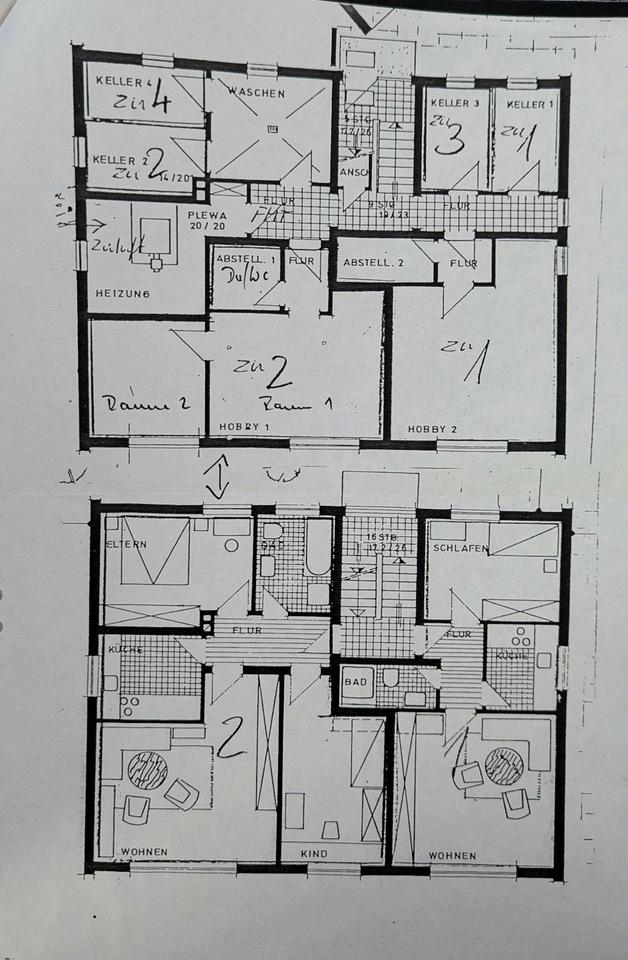 KELLER 4
Zu 4
WASCHEN
KELLER 3
Zu 3
KELLER 1
Zu 1
KELLER 2
Zu 2
14/20
ANSCH
FLUR
PLEWA
20/20
9 STG
19/23
FLUR
Zuluft
HEIZUNG
ABSTELL. 1
Du/WC
FLUR
ABSTELL. 2
FLUR
Zu 2
Zu 1
Raum 2
Raum 1
HOBBY 1
HOBBY 2
ELTERN
BAD
16 STG.
17.2/26
SCHLAFEN
FLUR
FLUR
KÜCHE
KÜCHE
BAD
2
1
WOHNEN
KIND
WOHNEN